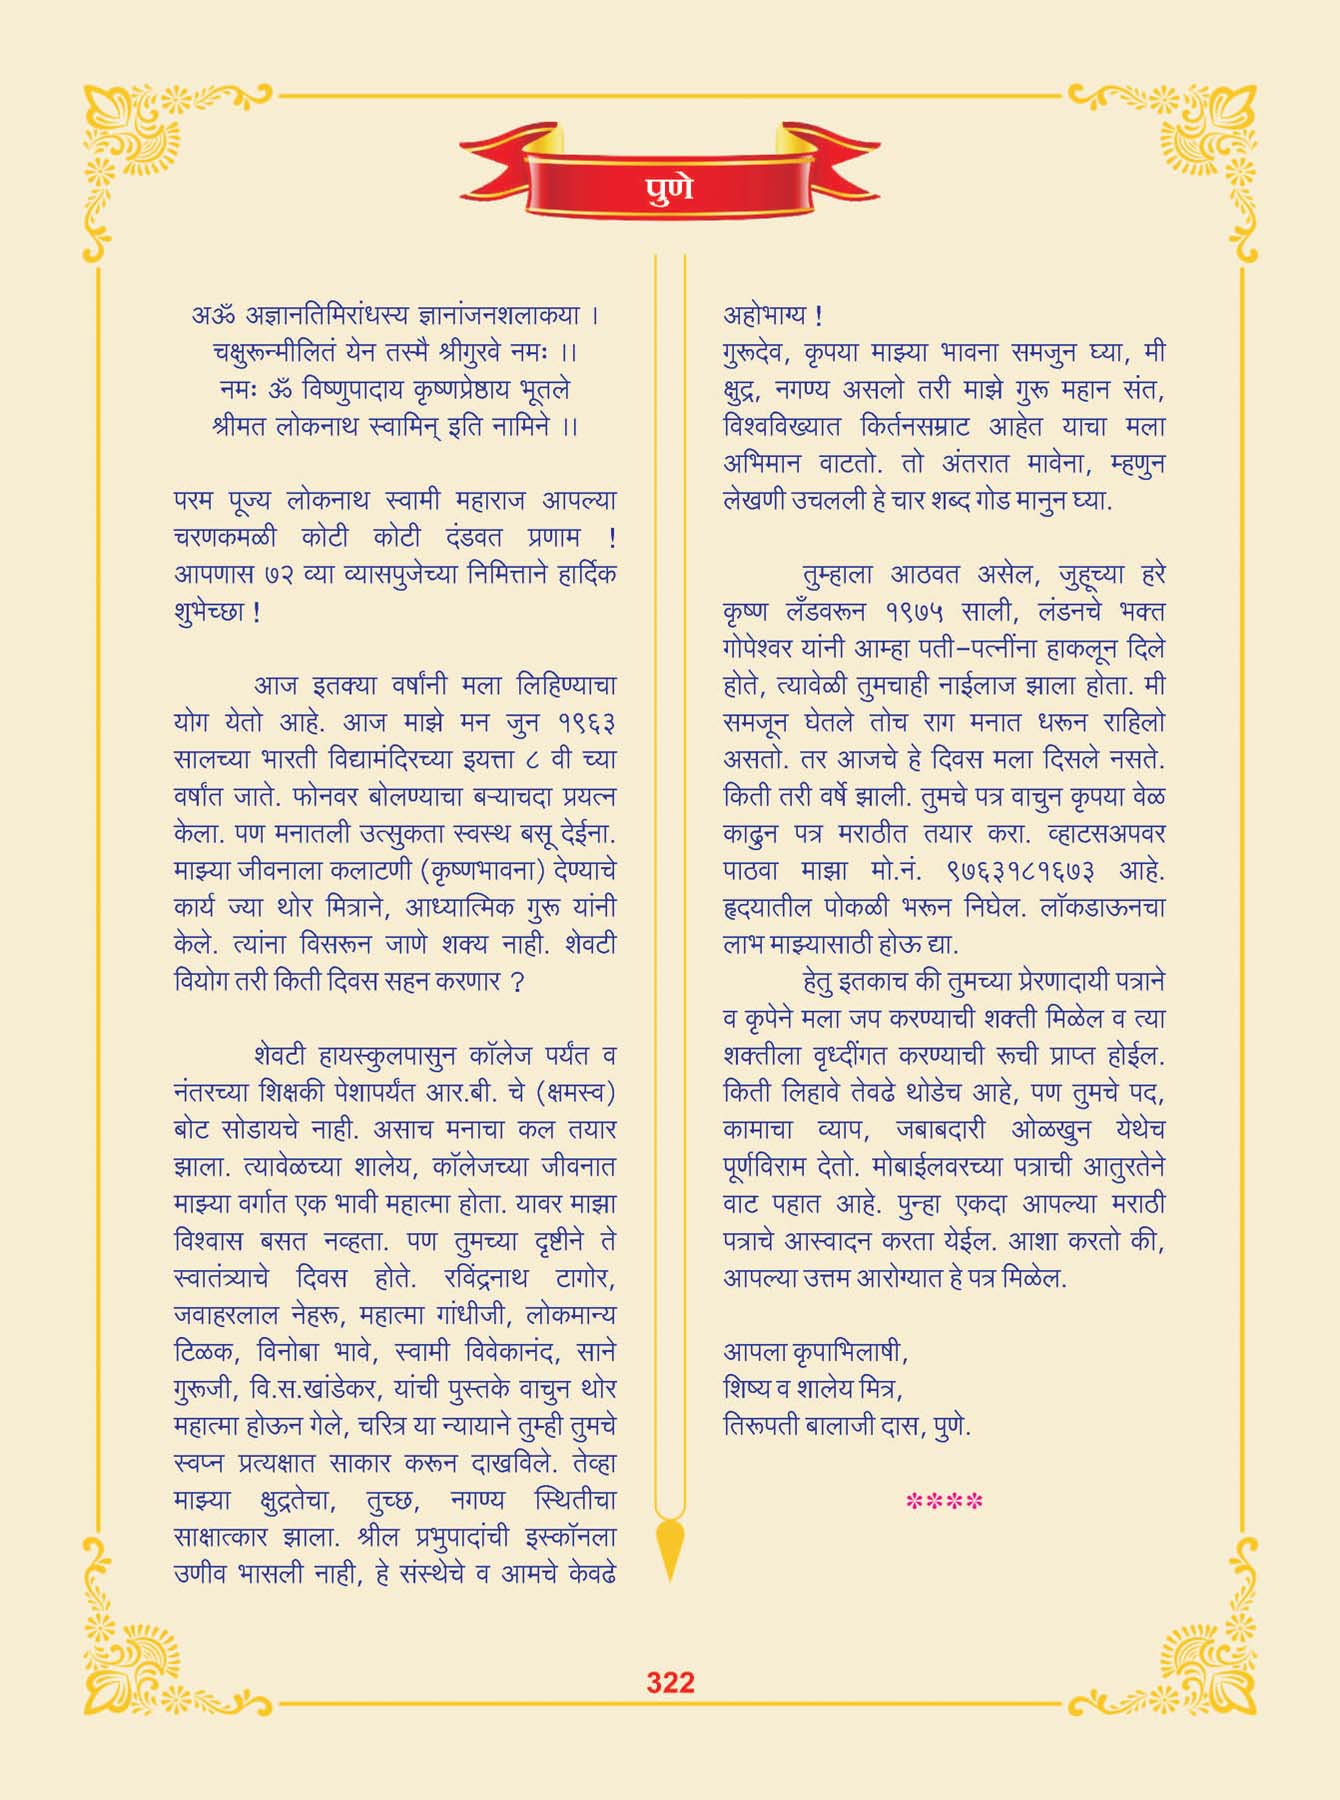 पुणे
अॐ अज्ञानतिमिरांधस्य ज्ञानांजनशलाकया ।
चक्षुरून्मीलितं येन तस्मै श्रीगुरवे नमः ।।
नमः ॐ विष्णुपादाय कृष्णप्रेष्ठाय भूतले
श्रीमत लोकनाथ स्वामिन् इति नामिने ।।
परम पूज्य लोकनाथ स्वामी महाराज आपल्या
चरणकमळी कोटी कोटी दंडवत प्रणाम !
आपणास ७२ व्या व्यासपुजेच्या निमित्ताने हार्दिक
शुभेच्छा !
आज इतक्या वर्षांनी मला लिहिण्याचा
योग येतो आहे. आज माझे मन जुन १९६३
सालच्या भारती विद्यामंदिरच्या इयत्ता ८ वी च्या
वर्षांत जाते. फोनवर बोलण्याचा बऱ्याचदा प्रयत्न
केला. पण मनातली उत्सुकता स्वस्थ बसू देईना.
माझ्या जीवनाला कलाटणी (कृष्णभावना) देण्याचे
कार्य ज्या थोर मित्राने, आध्यात्मिक गुरू यांनी
केले. त्यांना विसरून जाणे शक्य नाही. शेवटी
वियोग तरी किती दिवस सहन करणार ?
शेवटी हायस्कुलपासुन कॉलेज पर्यंत व
नंतरच्या शिक्षकी पेशापर्यंत आर.बी. चे (क्षमस्व)
बोट सोडायचे नाही. असाच मनाचा कल तयार
झाला. त्यावेळच्या शालेय, कॉलेजच्या जीवनात
माझ्या वर्गात एक भावी महात्मा होता. यावर माझा
विश्वास बसत नव्हता. पण तुमच्या दृष्टीने ते
स्वातंत्र्याचे दिवस होते. रविंद्रनाथ टागोर,
जवाहरलाल नेहरू, महात्मा गांधीजी, लोकमान्य
टिळक, विनोबा भावे, स्वामी विवेकानंद, साने
गुरूजी, वि.स.खांडेकर, यांची पुस्तके वाचुन थोर
महात्मा होऊन गेले, चरित्र या न्यायाने तुम्ही तुमचे
स्वप्न प्रत्यक्षात साकार करून दाखविले. तेव्हा
माझ्या क्षुद्रतेचा, तुच्छ, नगण्य स्थितीचा
साक्षात्कार झाला. श्रील प्रभुपादांची इस्कॉनला
उणीव भासली नाही, हे संस्थेचे व आमचे केवढे
अहोभाग्य !
गुरूदेव, कृपया माझ्या भावना समजुन घ्या, मी
क्षुद्र, नगण्य असलो तरी माझे गुरू महान संत,
विश्वविख्यात किर्तनसम्राट आहेत याचा मला
अभिमान वाटतो. तो अंतरात मावेना, म्हणुन
लेखणी उचलली हे चार शब्द गोड मानुन घ्या.
तुम्हाला आठवत असेल, जुहूच्या हरे
कृष्ण लँडवरून १९७५ साली, लंडनचे भक्त
गोपेश्वर यांनी आम्हा पती-पत्नींना हाकलून दिले
होते, त्यावेळी तुमचाही नाईलाज झाला होता. मी
समजून घेतले तोच राग मनात धरून राहिलो
असतो. तर आजचे हे दिवस मला दिसले नसते.
किती तरी वर्षे झाली. तुमचे पत्र वाचुन कृपया वेळ
काढुन पत्र मराठीत तयार करा. व्हाटसअपवर
पाठवा माझा मो.नं. ९७६३१८१६७३ आहे.
हृदयातील पोकळी भरून निघेल. लॉकडाऊनचा
लाभ माझ्यासाठी होऊ द्या.
हेतु इतकाच की तुमच्या प्रेरणादायी पत्राने
व कृपेने मला जप करण्याची शक्ती मिळेल व त्या
शक्तीला वृध्दींगत करण्याची रूची प्राप्त होईल.
किती लिहावे तेवढे थोडेच आहे, पण तुमचे पद,
कामाचा व्याप, जबाबदारी ओळखुन येथेच
पूर्णविराम देतो. मोबाईलवरच्या पत्राची आतुरतेने
वाट पहात आहे. पुन्हा एकदा आपल्या मराठी
पत्राचे आस्वादन करता येईल. आशा करतो की,
आपल्या उत्तम आरोग्यात हे पत्र मिळेल.
आपला कृपाभिलाषी,
शिष्य व शालेय मित्र,
तिरूपती बालाजी दास, पुणे.
****
322